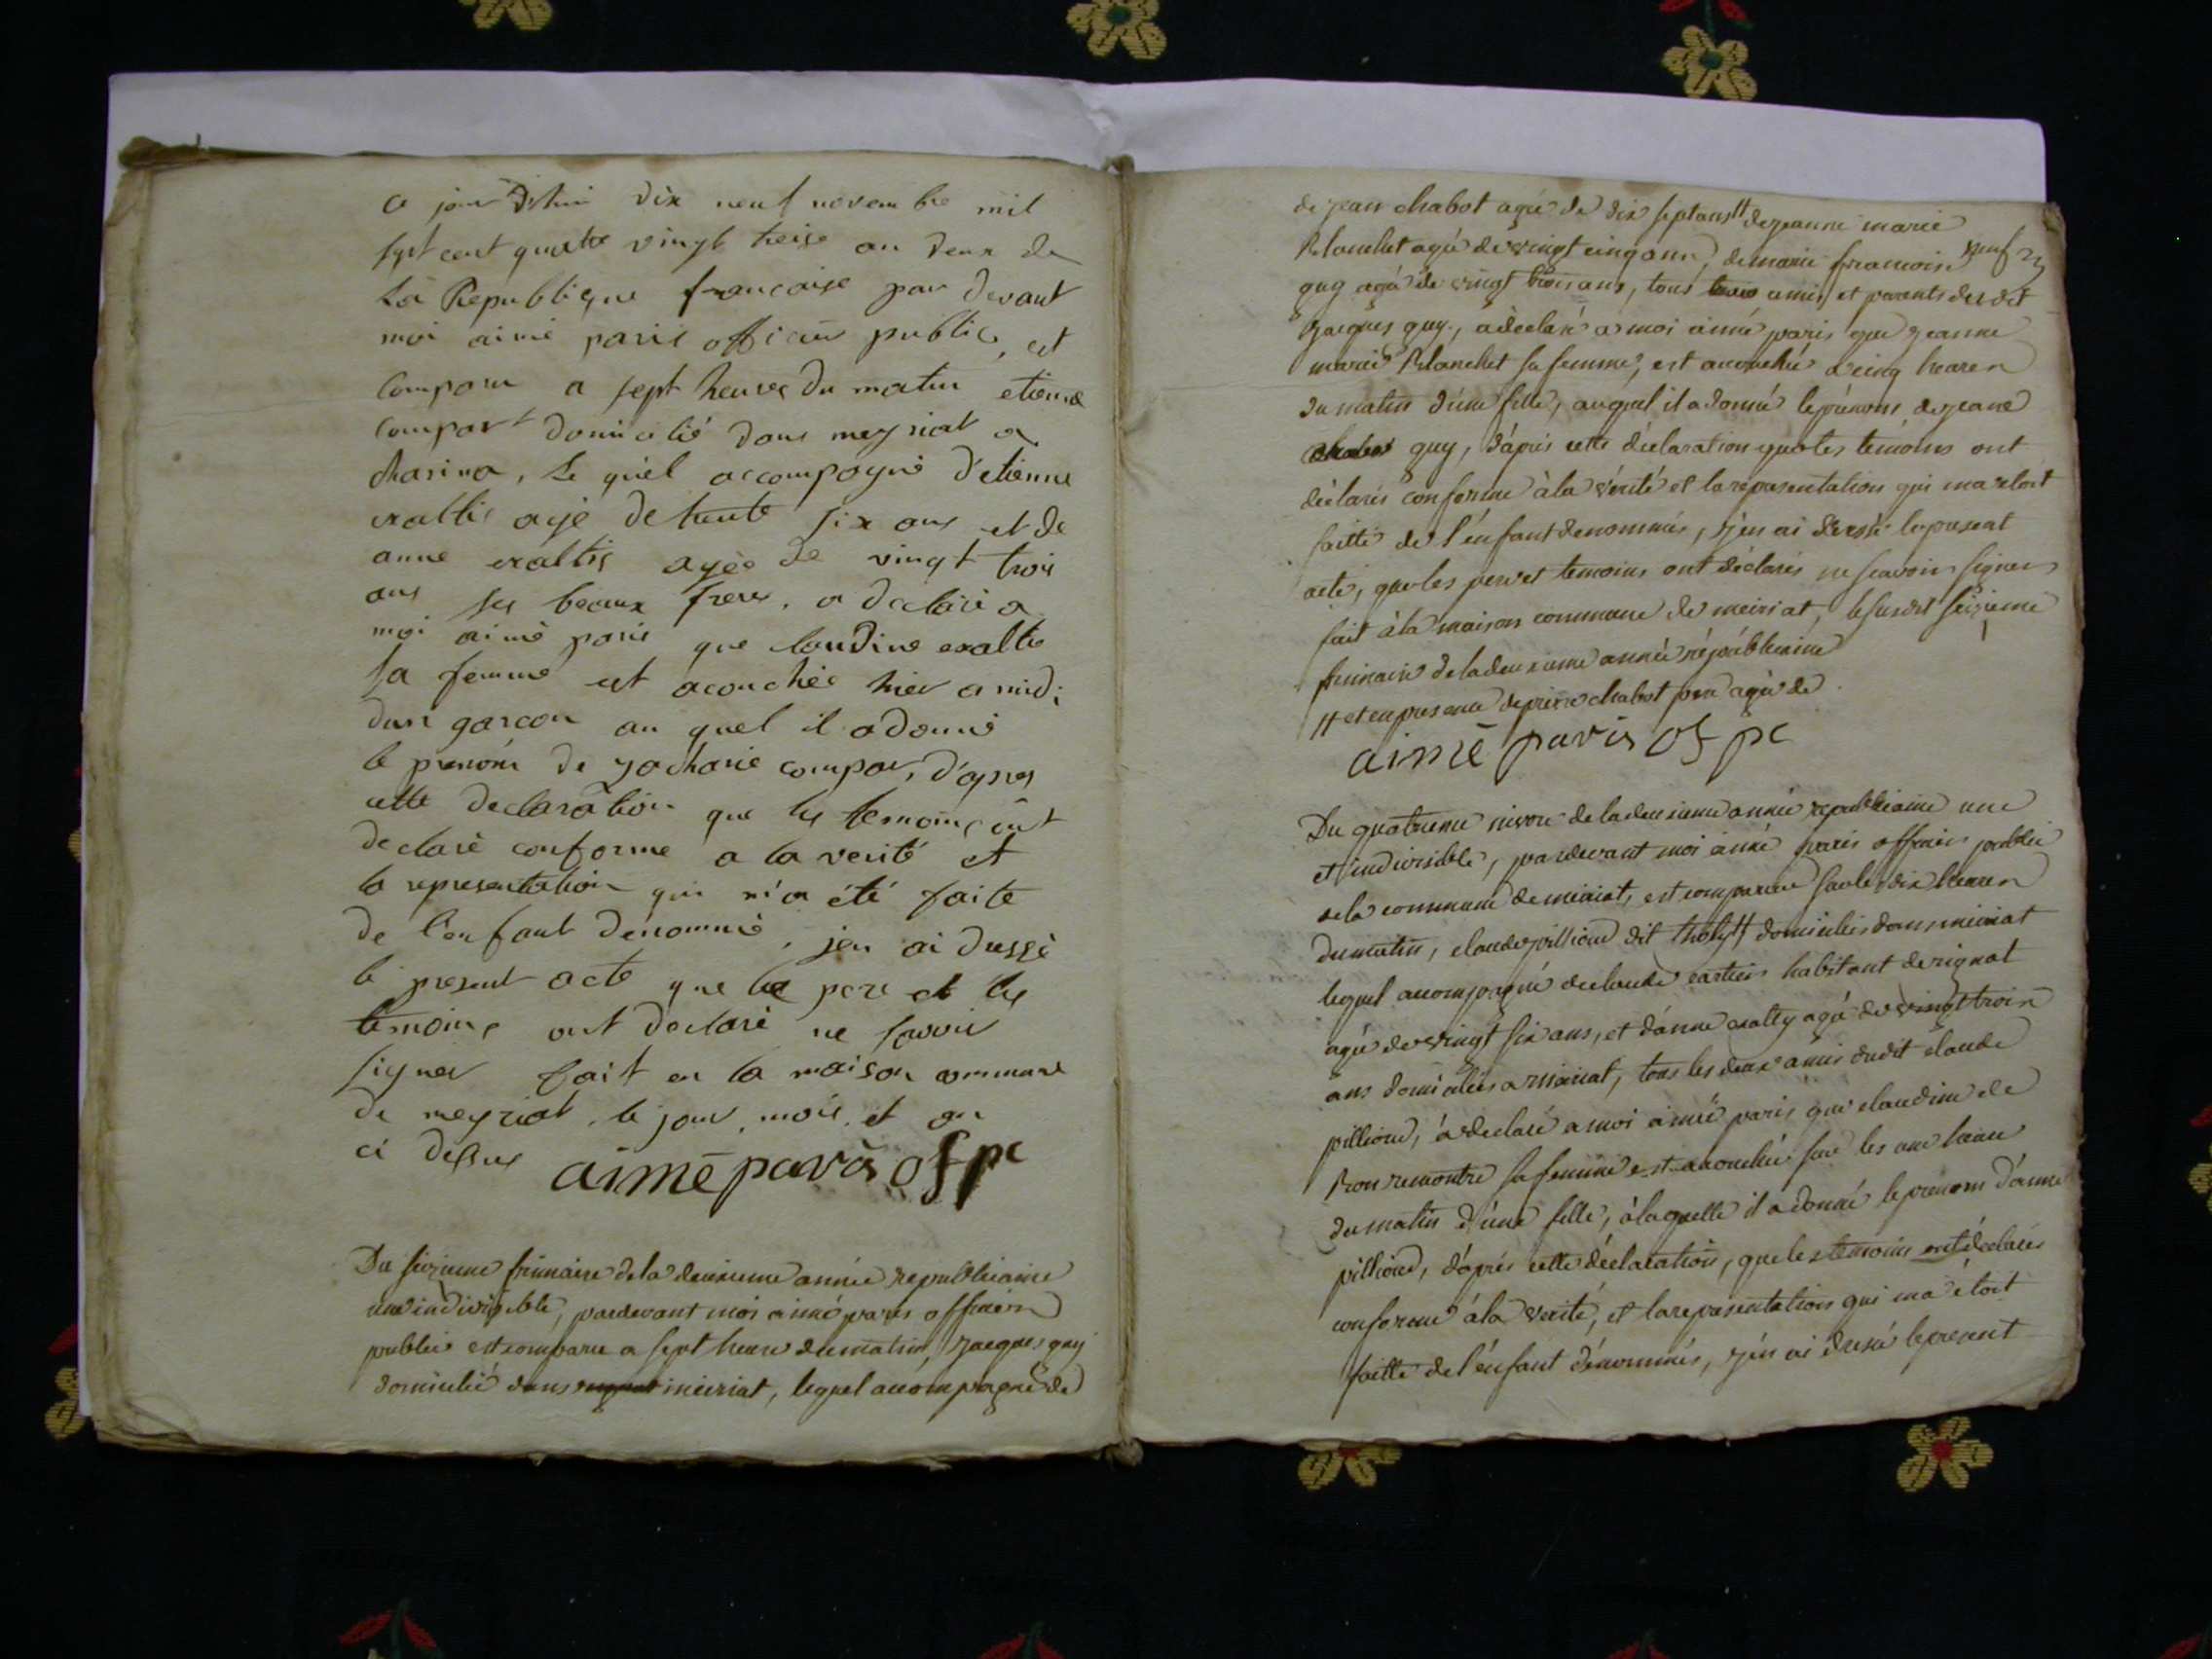 ce jour d'hui dix neuf novembre mil
sept cent quatre vingt treise an deux de
La Republique francaise par devant
moi aimé paris officier public, est
comparu a sept heures du matin etienne
compart domicilié dans meyriat a
charinas, Le quel accompagné d'etienne
exaltis agé de trente six ans et de
anne exaltis agée de vingt trois
ans ses beaux freres, a declaré a
moi aimé paris que claudine exaltis
sa femme est acouchée hier a midi
dun garcon au quel il a donné
le prenom de zacharie compar, d'apres
cette declaration que les temoins ont
declaré conforme a la verité et
la representation qui m'a été faite
de l'enfant dénommé, jen ai dressé
le present acte que le pere et les
temoins ont declaré ne savoir
signer fait en la maison commune
de meyriat, le jour, mois, et an
ci dessus aimé paris of pc
Du seizieme frimaire dela deuxieme année republicaine
une indivisible, pardevant moi aimé paris officier
public est comparu a sept heure du matin, jacques guy
domicilié dans meiriat, lequel accompagné de
de jean chabot agé de dix sept ans # de jeanne marie
Blanchet agé de vingt cinq ans, de marie francoise
guy agé de vingt trois ans, tous amis et parents dudit
jacques guy, a déclaré a moi aimé paris que jeanne
marie Blanchet sa femme, est accouchée a cinq heures
du matin d'une fille, auquel il a donné le prénoms de jeane
guy, d'après cette déclaration que les temoins ont
déclarés conforme à la vérité et la representation qui ma etoit
faitte de l'enfant denommés, j'en ai dressé le present
acte, que les peres et temoins ont déclarés ne scavoir signer
fait à la maison commune de meiriat, le susdit seizieme
frimaire de la deuxieme année républicaine
# et en presence de pierre chabot pere agé de
aimé paris of pc
Du quatrieme nivose de la deuxieme année republicaine une
et indivisible, pardevant moi aimé paris officier public
de la commune de meiriat, est comparue sur les dix heures
du matin, claude pilliond dit tholy # domiciliés dans meiriat
lequel accompagné de claude cartier habitant de rignat
agé de vingt six ans, et d'anne exalty agé de vingt trois
ans domiciliés a meiriat, tous les deux amis dudit claude
pilliond, a declaré a moi aimé paris que claudine de
Bon remontre sa femme est accouchée sur les une heure
du matin d'une fille, à laquelle il a donné le prenom d'anne
pilliond, d'après cette déclaration, que les temoins ont déclarés
conforme à la verité, et la representation qui ma étoit
faitte de l'enfant dénommés, j'en ai dressé le present